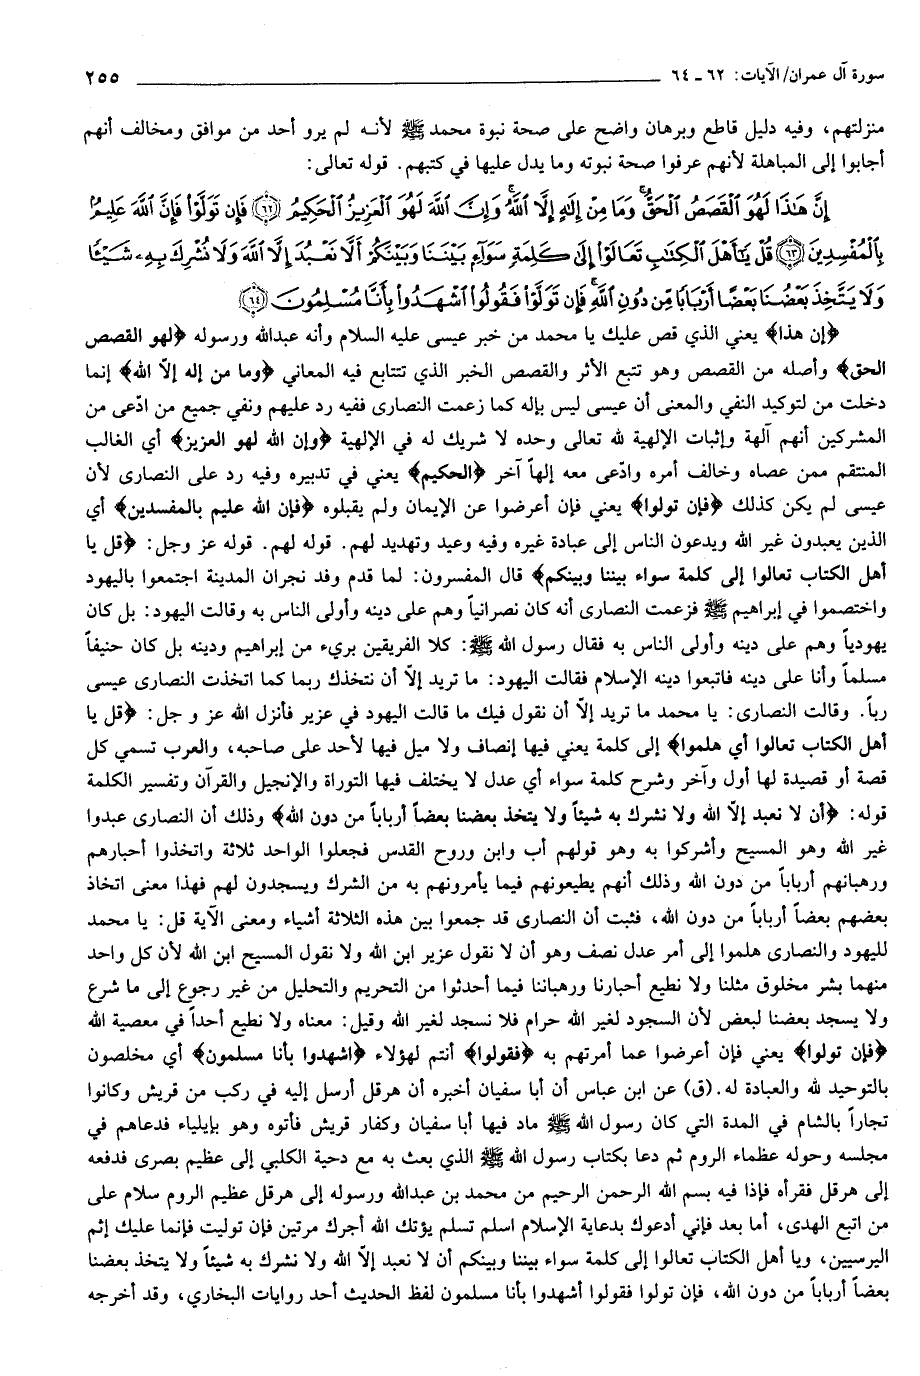 سورة آل عمران/ الآيات: ٦٢ ـ ٦٤ ٢٥٥
منزلتهم، وفيه دليل قاطع وبرهان واضح على صحة نبوة محمد ﷺ لأنه لم يرو أحد من موافق ومخالف أنهم
أجابوا إلى المباهلة لأنهم عرفوا صحة نبوته وما يدل عليها في كتبهم. قوله تعالى:
إِنَّ هَٰذَا لَهُوَ ٱلْقَصَصُ ٱلْحَقُّ وَمَا مِنْ إِلَٰهٍ إِلَّا ٱللَّهُ وَإِنَّ ٱللَّهَ لَهُوَ ٱلْعَزِيزُ ٱلْحَكِيمُ ﴿٦٢﴾ فَإِن تَوَلَّوْا۟ فَإِنَّ ٱللَّهَ عَلِيمٌۢ
بِٱلْمُفْسِدِينَ ﴿٦٣﴾ قُلْ يَٰٓأَهْلَ ٱلْكِتَٰبِ تَعَالَوْا۟ إِلَىٰ كَلِمَةٍ سَوَآءٍۭ بَيْنَنَا وَبَيْنَكُمْ أَلَّا نَعْبُدَ إِلَّا ٱللَّهَ وَلَا نُشْرِكَ بِهِۦ شَيْـًٔا
وَلَا يَتَّخِذَ بَعْضُنَا بَعْضًا أَرْبَابًا مِّن دُونِ ٱللَّهِ فَإِن تَوَلَّوْا۟ فَقُولُوا۟ ٱشْهَدُوا۟ بِأَنَّا مُسْلِمُونَ ﴿٦٤﴾
﴿إن هذا﴾ يعني الذي قص عليك يا محمد من خبر عيسى عليه السلام وأنه عبدالله ورسوله ﴿لهو القصص
الحق﴾ وأصله من القصص وهو تتبع الأثر والقصص الخبر الذي تتتابع فيه المعاني ﴿وما من إله إلّا الله﴾ إنما
دخلت من لتوكيد النفي والمعنى أن عيسى ليس بإله كما زعمت النصارى ففيه رد عليهم ونفي جميع من ادّعى من
المشركين أنهم آلهة وإثبات الإلهية لله تعالى وحده لا شريك له في الإلهية ﴿وإن الله لهو العزيز﴾ أي الغالب
المنتقم ممن عصاه وخالف أمره وادّعى معه إلهاً آخر ﴿الحكيم﴾ يعني في تدبيره وفيه رد على النصارى لأن
عيسى لم يكن كذلك ﴿فإن تولوا﴾ يعني فإن أعرضوا عن الإيمان ولم يقبلوه ﴿فإن الله عليم بالمفسدين﴾ أي
الذين يعبدون غير الله ويدعون الناس إلى عبادة غيره وفيه وعيد وتهديد لهم. قوله لهم. قوله عز وجل: ﴿قل يا
أهل الكتاب تعالوا إلى كلمة سواء بيننا وبينكم﴾ قال المفسرون: لما قدم وفد نجران المدينة اجتمعوا باليهود
واختصموا في إبراهيم ﷺ فزعمت النصارى أنه كان نصرانياً وهم على دينه وأولى الناس به وقالت اليهود: بل كان
يهودياً وهم على دينه وأولى الناس به فقال رسول الله ﷺ: كلا الفريقين بريء من إبراهيم ودينه بل كان حنيفاً
مسلماً وأنا على دينه فاتبعوا دينه الإسلام فقالت اليهود: ما تريد إلّا أن نتخذك ربما كما اتخذت النصارى عيسى
رباً. وقالت النصارى: يا محمد ما تريد إلّا أن نقول فيك ما قالت اليهود في عزير فأنزل الله عز و جل: ﴿قل يا
أهل الكتاب تعالوا أي هلموا﴾ إلى كلمة يعني فيها إنصاف ولا ميل فيها لأحد على صاحبه، والعرب تسمي كل
قصة أو قصيدة لها أول وآخر وشرح كلمة سواء أي عدل لا يختلف فيها التوراة والإنجيل والقرآن وتفسير الكلمة
قوله: ﴿أن لا نعبد إلّا الله ولا نشرك به شيئاً ولا يتخذ بعضنا بعضاً أرباباً من دون الله﴾ وذلك أن النصارى عبدوا
غير الله وهو المسيح وأشركوا به وهو قولهم أب وابن وروح القدس فجعلوا الواحد ثلاثة واتخذوا أحبارهم
ورهبانهم أرباباً من دون الله وذلك أنهم يطيعونهم فيما يأمرونهم به من الشرك ويسجدون لهم فهذا معنى اتخاذ
بعضهم بعضاً أرباباً من دون الله، فثبت أن النصارى قد جمعوا بين هذه الثلاثة أشياء ومعنى الآية قل: يا محمد
لليهود والنصارى هلموا إلى أمر عدل نصف وهو أن لا نقول عزير ابن الله ولا نقول المسيح ابن الله لأن كل واحد
منهما بشر مخلوق مثلنا ولا نطيع أحبارنا ورهباننا فيما أحدثوا من التحريم والتحليل من غير رجوع إلى ما شرع
ولا يسجد بعضنا لبعض لأن السجود لغير الله حرام فلا نسجد لغير الله وقيل: معناه ولا نطيع أحداً في معصية الله
﴿فإن تولوا﴾ يعني فإن أعرضوا عما أمرتهم به ﴿فقولوا﴾ أنتم لهؤلاء ﴿اشهدوا بأنا مسلمون﴾ أي مخلصون
بالتوحيد لله والعبادة له.(ق) عن ابن عباس أن أبا سفيان أخبره أن هرقل أرسل إليه في ركب من قريش وكانوا
تجاراً بالشام في المدة التي كان رسول الله ﷺ ماد فيها أبا سفيان وكفار قريش فأتوه وهو بإيلياء فدعاهم في
مجلسه وحوله عظماء الروم ثم دعا بكتاب رسول الله ﷺ الذي بعث به مع دحية الكلبي إلى عظيم بصرى فدفعه
إلى هرقل فقرأه فإذا فيه بسم الله الرحمن الرحيم من محمد بن عبدالله ورسوله إلى هرقل عظيم الروم سلام على
من اتبع الهدى، أما بعد فإني أدعوك بدعاية الإسلام اسلم تسلم يؤتك الله أجرك مرتين فإن توليت فإنما عليك إثم
اليرسيين، ويا أهل الكتاب تعالوا إلى كلمة سواء بيننا وبينكم أن لا نعبد إلّا الله ولا نشرك به شيئاً ولا يتخذ بعضنا
بعضاً أرباباً من دون الله، فإن تولوا فقولوا أشهدوا بأنا مسلمون لفظ الحديث أحد روايات البخاري، وقد أخرجه